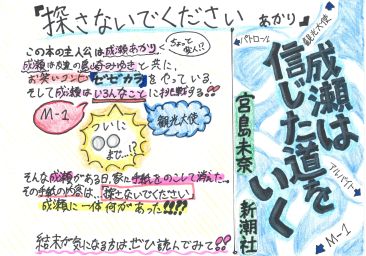 『探さないでください』あかり
この本の主人公は成瀬あかり
ちょっと変人!?
成瀬は友達の島崎みゆきと共に、
お笑いコンビゼゼカラをやっている。
そして成瀬はいろんなことに挑戦する!!
M-1
ついに
まで…!?
観光大使
そんな成瀬がある日、家に手紙をのこして消えた…。
その手紙の内容は…「探さないでください」
成瀬に一体何があった!!?
結末が気になる方はぜひ読んでみて!!
パトロール
観光大使
成瀬は
信じた道を
いく
アルバイト
M-1
宮島未奈
新潮社